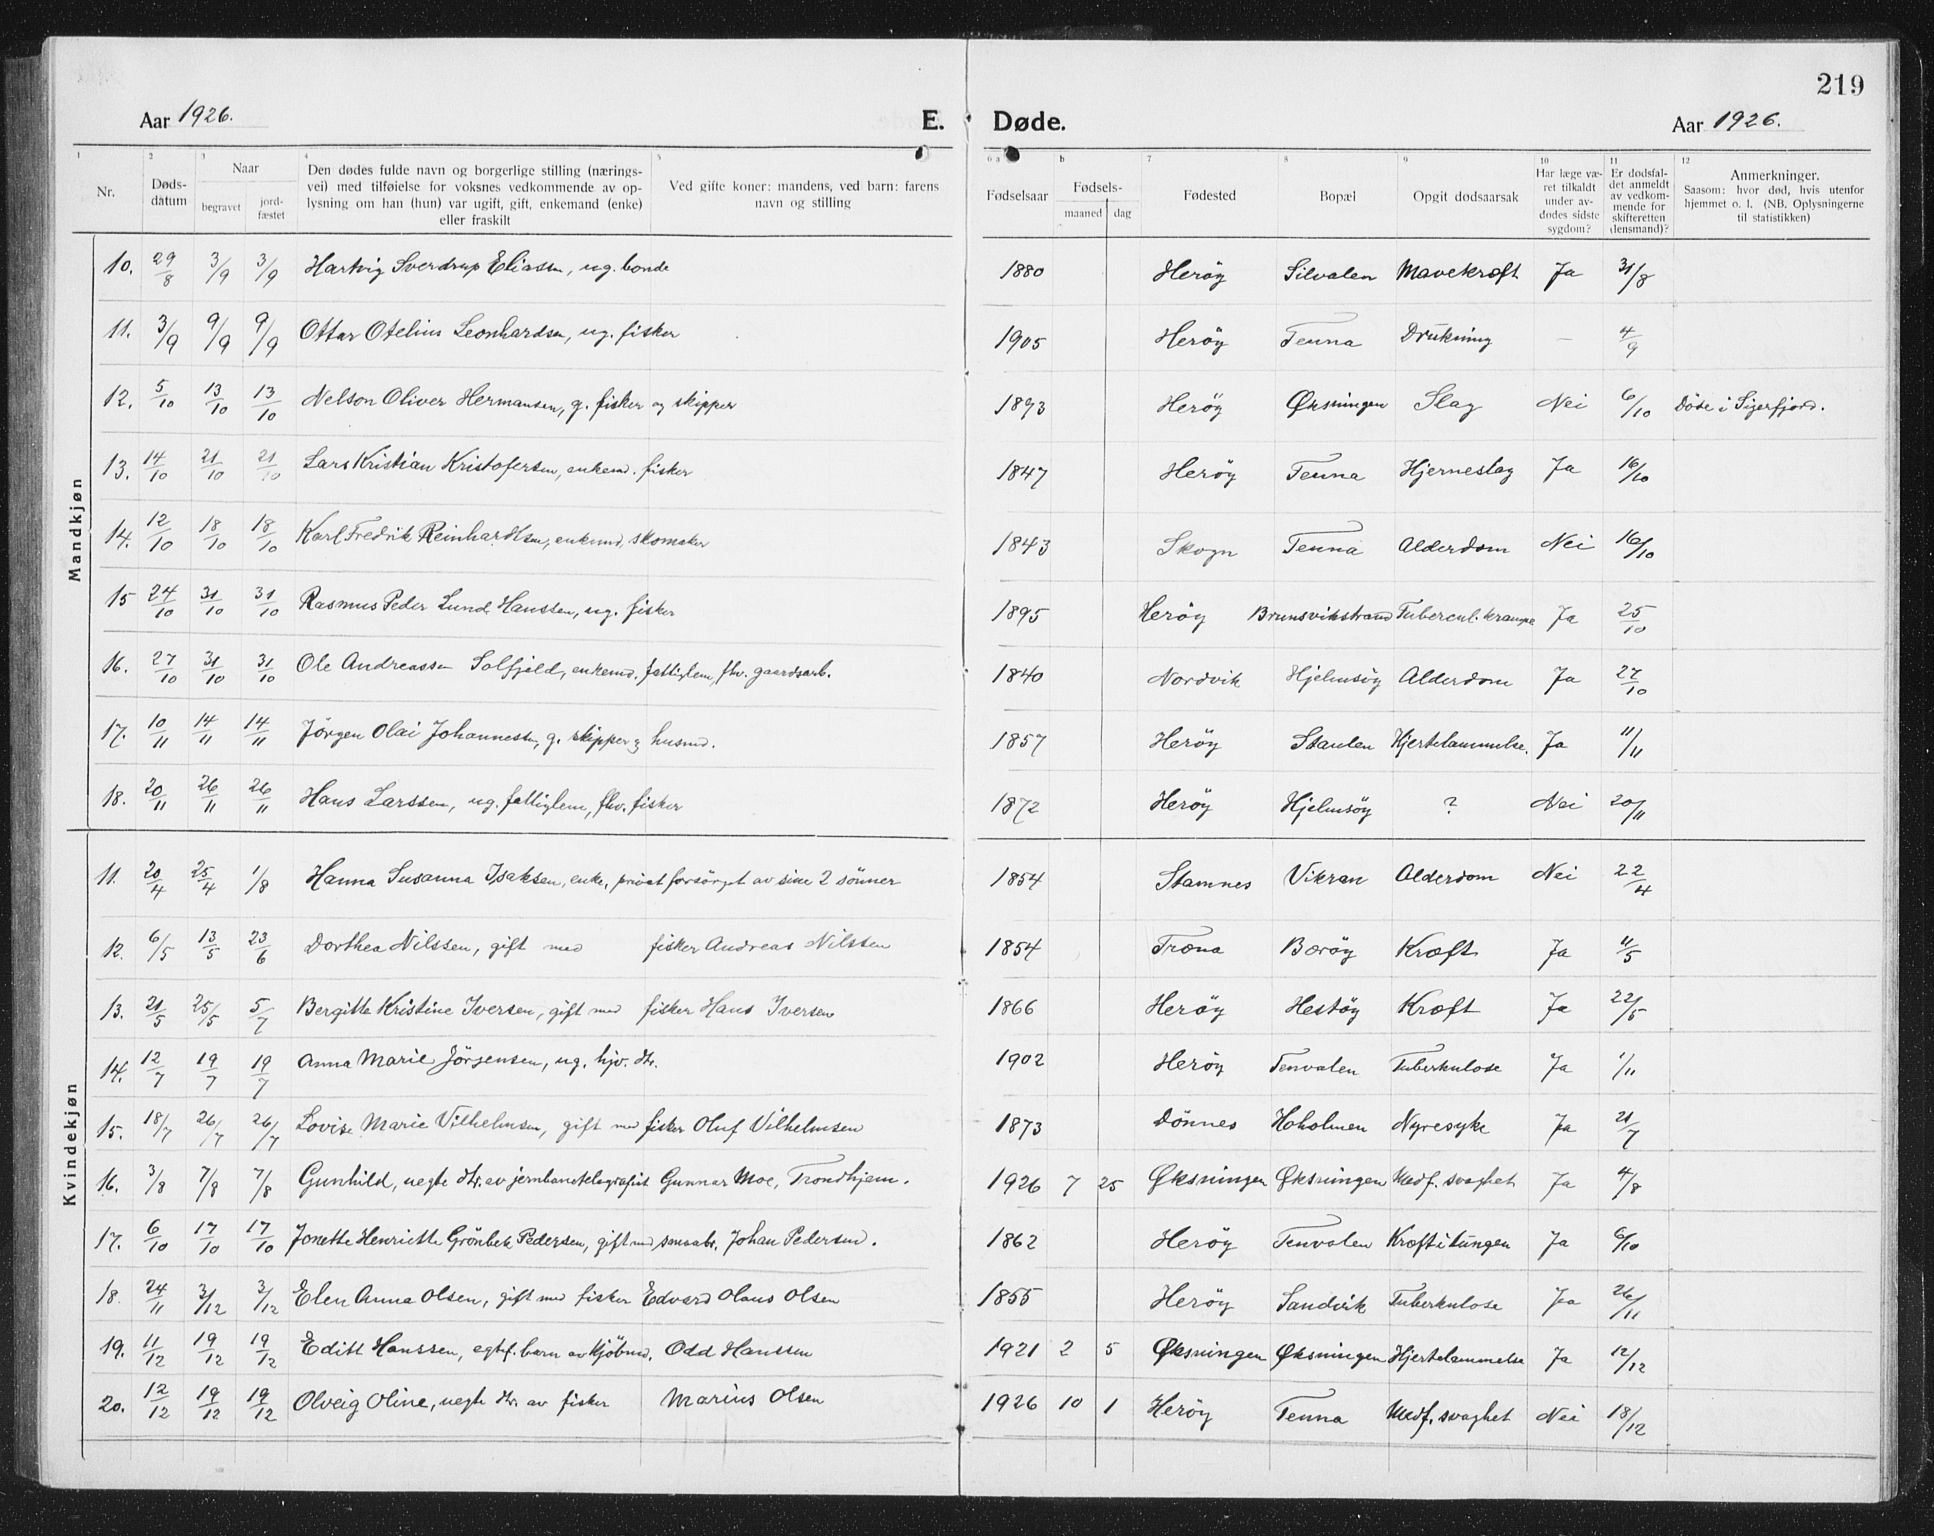 219
Aar 1926. E. Døde. Aar 1926.
1 2 3 4 5 6 a b 7 8 9 10 11 12
Nr. Døds-datum Naar begravet jord-fæstet Den dødes fulde navn og borgerlige stilling (nærings-vei) med tilføielse for voksnes vedkommende av op-lysning om han (hun) var ugift, gift, enkemand (enke) eller fraskilt Ved gifte koner: mandens, ved barn: farens navn og stilling Fødselsaar Fødsels- maaned dag Fødested Bopæl Opgit dødsaarsak Har læge væ-ret tilkaldt under av-dødes sidste sygdom? Er dødsfal-det anmeldt av vedkom-mende for skifteretten (lensmand)? Anmerkninger. Saasom: hvor død, hvis utenfor hjemmet o. l. (NB. Oplysningerne til statistikken)
Mandkjøn
10. 29/8 3/9 3/9 Hartvig Sverdrup Eliassen, ug. bonde 1880 Heröy Silvalen Mavekræft Ja 31/8
11. 3/9 9/9 9/9 Ottar Otelius Leonhardsen, ug. fisker 1905 Heröy Tenna Drukning — 4/9
12. 5/10 13/10 13/10 Nelson Oliver Hermansen, g. fisker og skipper 1893 Heröy Øksningen Slag Nei 6/10 Döde i Sigerfjord.
13. 14/10 21/10 21/10 Lars Kristian Kristofersen, enkemd. fisker 1847 Heröy Tenna Hjerneslag Ja 16/10
14. 12/10 18/10 18/10 Karl Fredrik Reinhardtsen, enkemd. skomaker 1843 Skogn Tenna Alderdom Nei 16/10
15 24/10 31/10 31/10 Rasmus Peder Lund Hanssen, ug. fisker 1895 Heröy Brunsvikstrand Tubercul. krampe Ja 25/10
16. 27/10 31/10 31/10 Ole Andreassen Solfjeld, enkemd. fattiglem, fhv. gaardsarb. 1840 Nordvik Hjelmsöy Alderdom Ja 27/10
17. 10/11 14/11 14/11 Jörgen Olai Johannessen, g. skipper og husmd. 1857 Heröy Staulen Hjertelammelse. Ja 11/11
18. 20/11 26/11 26/11 Hans Larssen, ug. fattiglem, fhv. fisker 1872 Heröy Hjelmsöy ? Nei 20/11
Kvindekjøn
11. 20/4 25/4 1/8 Hanna Susanna Isaksen, enke, privat forsörget av sine 2 sönner 1854 Stamnes Vikran Alderdom Nei 22/4
12. 6/5 13/5 23/6 Dorthea Nilssen, gift med fisker Andreas Nilssen 1854 Træna Bæröy Kræft Ja 11/5
13. 21/5 25/5 5/7 Bergitte Kristine Iversen, gift med fisker Hans Iversen 1866 Heröy Hestöy Kræft Ja 22/5
14. 12/7 19/7 19/7 Anna Marie Jörgensen, ug. hjv. dtr. 1902 Heröy Tenvalen Tuberkulose Ja 1/11
15. 18/7 26/7 26/7 Lovise Marie Vilhelmsen, gift med fisker Oluf Vilhelmsen 1873 Dönnes Hoholmen Nyresyke Ja 21/7
16. 3/8 7/8 7/8 Gunhild, uegte dtr. av jernbanetelegrafist Gunnar Moe, Trondhjem. 1926 7 25 Øksningen Øksningen Medf. svaghet Ja 4/8
17. 6/10 17/10 17/10 Jonette Henriette Grönbek Pedersen, gift med smaabr. Johan Pedersen. 1862 Heröy Tenvalen Kræft i tungen Ja 6/10
18. 24/11 3/12 3/12 Elen Anna Olsen, gift med fisker Edvard Olaus Olsen 1855 Heröy Sandvik Tuberkulose Ja 26/11
19. 11/12 19/12 19/12 Edith Hanssen, egtef. barn av kjöbmd. Odd Hanssen 1921 2 5 Øksningen Øksningen Hjertelammelse Ja 12/12
20. 12/12 19/12 19/12 Olveig Oline, uegte dtr. av fisker Marius Olsen 1926 10 1 Heröy Tenna Medf. svaghet Nei 18/12